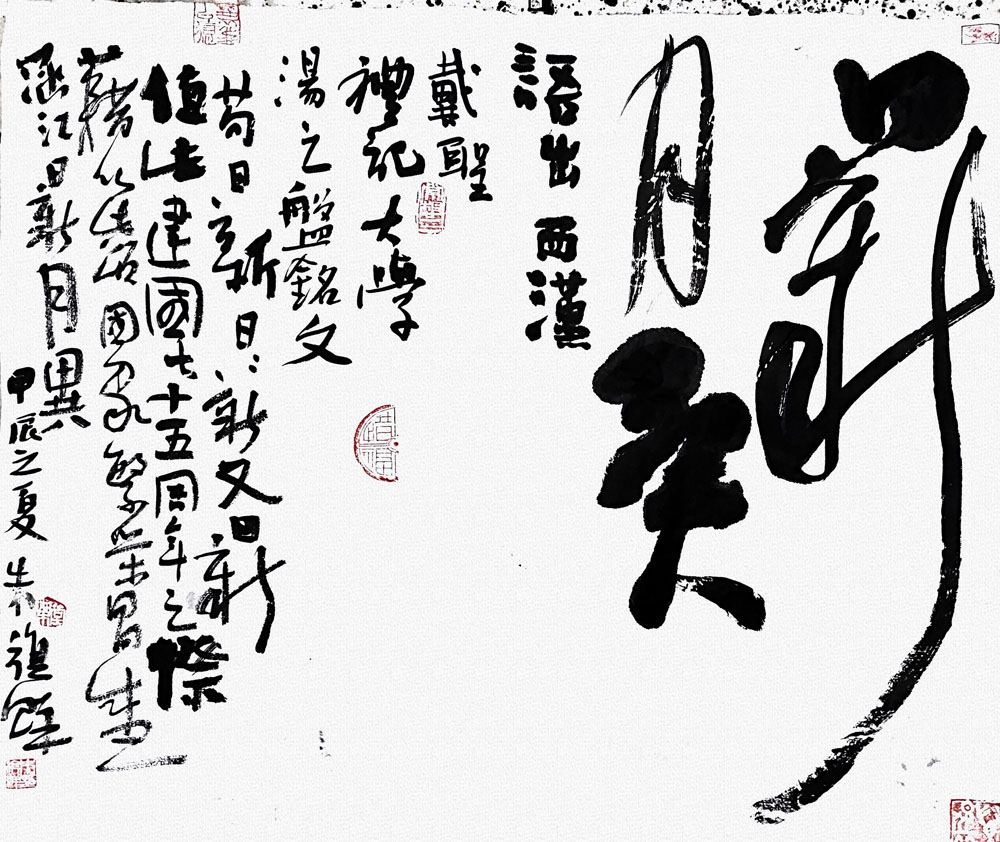 日新
月異
語出西漢
戴聖
禮記大學
湯之盤銘文
苟日新日:新又日新
值此建國七十五周年之際
藉以國家繁榮昌盛
涵江日新月異
甲辰之夏 朱復